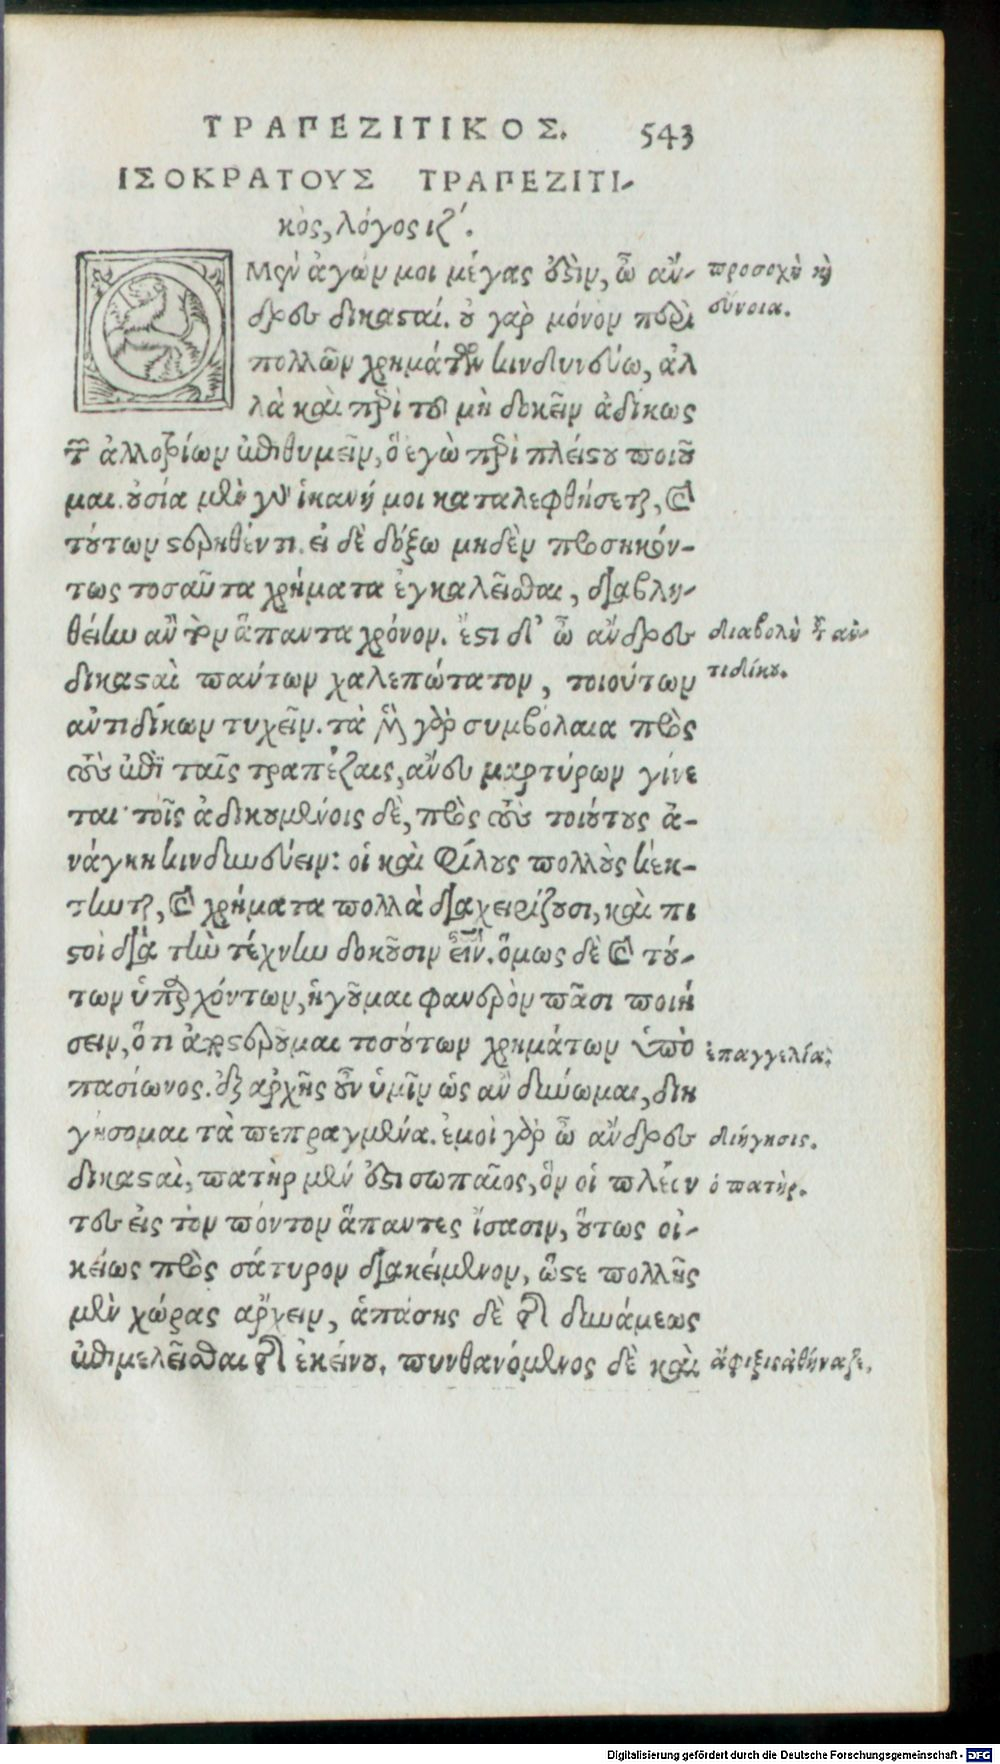 ΤΡΑΠΕΖΙΤΙΚΟΣ. 543
ΙΣΟΚΡΑΤΟΥΣ ΤΡΑΠΕΖΙΤΙ-
κὸς, λόγος ιζʹ.
Ὁ Μὲν ἀγών μοι μέγας ἐστὶν, ὦ ἄν-
δρες δικασταί. οὐ γὰρ μόνον περὶ
πολλῶν χρημάτων κινδυνεύω, ἀλ
λὰ καὶ περὶ τοῦ μὴ δοκεῖν ἀδίκως
τῶν ἀλλοτρίων ἐπιθυμεῖν, ὃ ἐγὼ περὶ πλείστου ποιοῦ
μαι. οὐσία μὲν γὰρ ἱκανή μοι καταλειφθήσεται, καὶ
τούτων στερηθέντι. εἰ δὲ δόξω μηδὲν προσηκόν-
τως τοσαῦτα χρήματα ἐγκαλεῖσθαι, διαβλη-
θείην ἂν τὸν ἅπαντα χρόνον. ἔστι δ' ὦ ἄνδρες
δικασταὶ πάντων χαλεπώτατον, τοιούτων
ἀντιδίκων τυχεῖν. τὰ μὲν γὰρ συμβόλαια πρὸς
τοὺς ἐπὶ ταῖς τραπέζαις, ἄνευ μαρτύρων γίνε
ται· τοῖς ἀδικουμένοις δὲ, πρὸς τοὺς τοιούτους ἀ-
νάγκη κινδυνεύειν: οἳ καὶ φίλους πολλοὺς κέκ-
τηνται, καὶ χρήματα πολλὰ διαχειρίζουσι, καὶ πι
στοὶ διὰ τὴν τέχνην δοκοῦσιν εἶναι. ὅμως δὲ καὶ τού-
των ὑπαρχόντων, ἡγοῦμαι φανερὸν πᾶσι ποιή
σειν, ὅτι ἀποστεροῦμαι τοσούτων χρημάτων ὑπὸ
πασίωνος. ἐξ ἀρχῆς οὖν ὑμῖν ὡς ἂν δύνωμαι, διη
γήσομαι τὰ πεπραγμένα. ἐμοὶ γὰρ ὦ ἄνδρες
δικασταὶ, πατὴρ μέν ἐστι σωπαῖος, ὃν οἱ πλέον
τες εἰς τὸν πόντον ἅπαντες ἴσασιν, οὕτως οἰ-
κείως πρὸς σάτυρον διακείμενον, ὥστε πολλῆς
μὲν χώρας ἄρχειν, ἁπάσης δὲ τῆς δυνάμεως
ἐπιμελεῖσθαι τῆς ἐκείνου. πυνθανόμενος δὲ καὶ
προσοχὴ καὶ
εὔνοια.
διαβολὴ τοῦ ἀν-
τιδίκου.
ἐπαγγελία.
διήγησις.
ὁ πατήρ.
ἄφιξις ἀθήναζε.
Digitalisierung gefördert durch die Deutsche Forschungsgemeinschaft - DFG